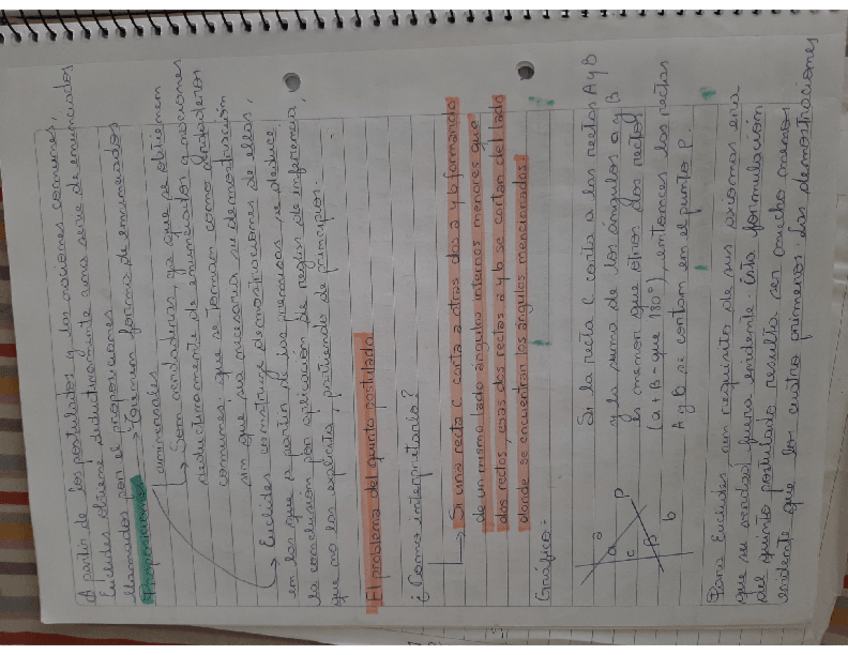 A partir de los postulados y las nociones comunes,
Euclides obtiene deductivamente una serie de enunciados
llamados por el proposiciones.
Proposiciones → Tienen forma de enunciados
universales
↳ Son verdaderas, ya que se obtienen
deductivamente de enunciados y nociones
comunes que se toman como verdaderos
sin que sea necesaria su demostración
→ Euclides construye demostraciones de ellas,
en las que a partir de las premisas se deduce
la conclusión por aplicación de reglas de inferencia,
que no las explicita, partiendo de principios.
El problema del quinto postulado
¿Como interpretarlo?
→ Si una recta C corta a otras dos a y b formando
de un mismo lado ángulos internos menores que
dos rectos, esas dos rectas a y b se cortan del lado
donde se encuentran los ángulos mencionados.
Gráfico:
a
a
P
c
B
b
Si la recta C corta a las rectas A y B
y la suma de los ángulos a y B
es menor que otros dos rectos
(a + B - que 180°), entonces las rectas
A y B se cortan en el punto P.
Para Euclides un requisito de sus axiomas era
que su verdad fuera evidente. Esta formulación
del quinto postulado resulta ser mucho menos
evidente que los cuatro primeros. Las demostraciones